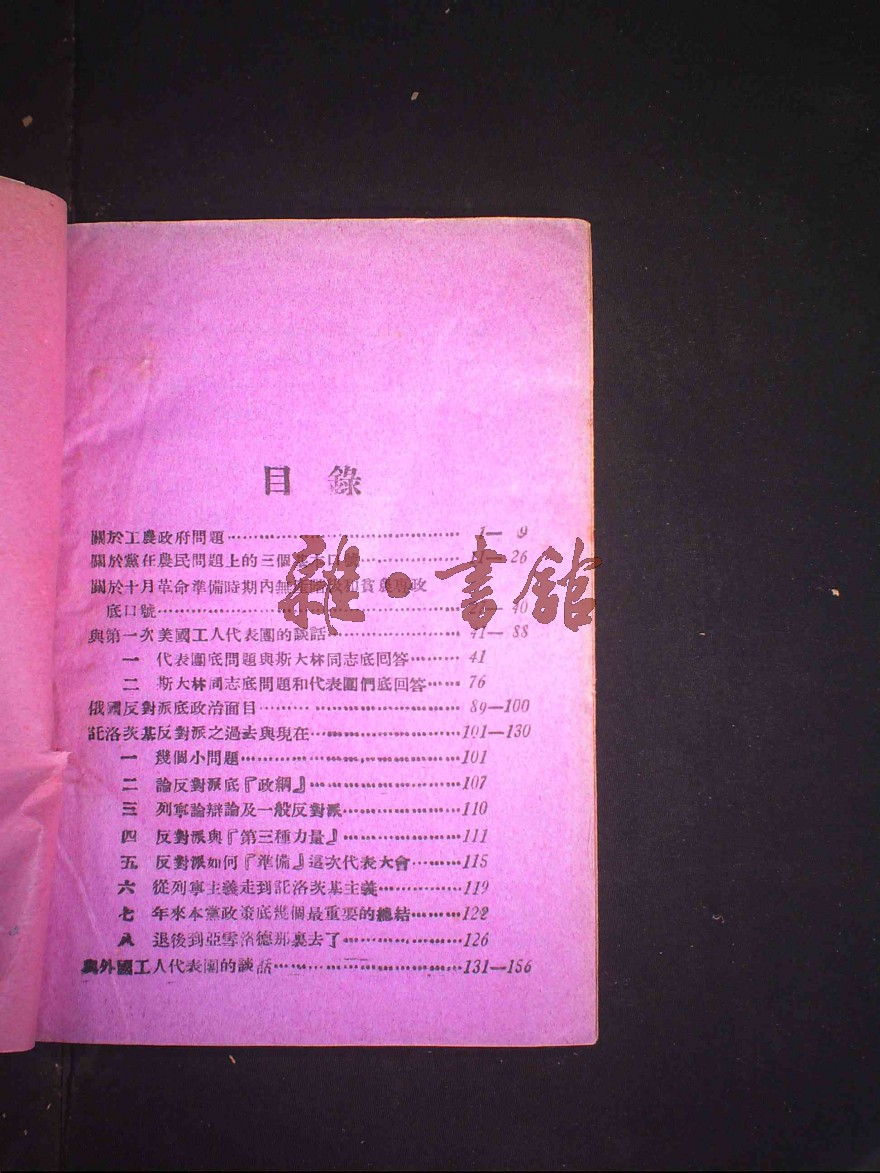 目錄
關於工農政府問題……………………………1— 9
關於黨在農民問題上的三個基本口號……………11—26
關於十月革命準備時期內無產階級和貧農專政
底口號…………………………………… —40
與第一次美國工人代表團的談話………………41—88
一 代表團底問題與斯大林同志底回答………41
二 斯大林同志底問題和代表團們底回答……76
俄國反對派底政治面目…………………………89—100
託洛茨基反對派之過去與現在…………………101—130
一 幾個小問題…………………………………101
二 論反對派底『政綱』………………………107
三 列寧論辯論及一般反對派…………………110
四 反對派與『第三種力量』…………………111
五 反對派如何『準備』這次代表大會………115
六 從列寧主義走到託洛茨基主義……………119
七 年來本黨政策底幾個最重要的總結………122
八 退後到亞雪洛德那裏去了…………………126
與外國工人代表團的談話………………………131—156
雜·書館